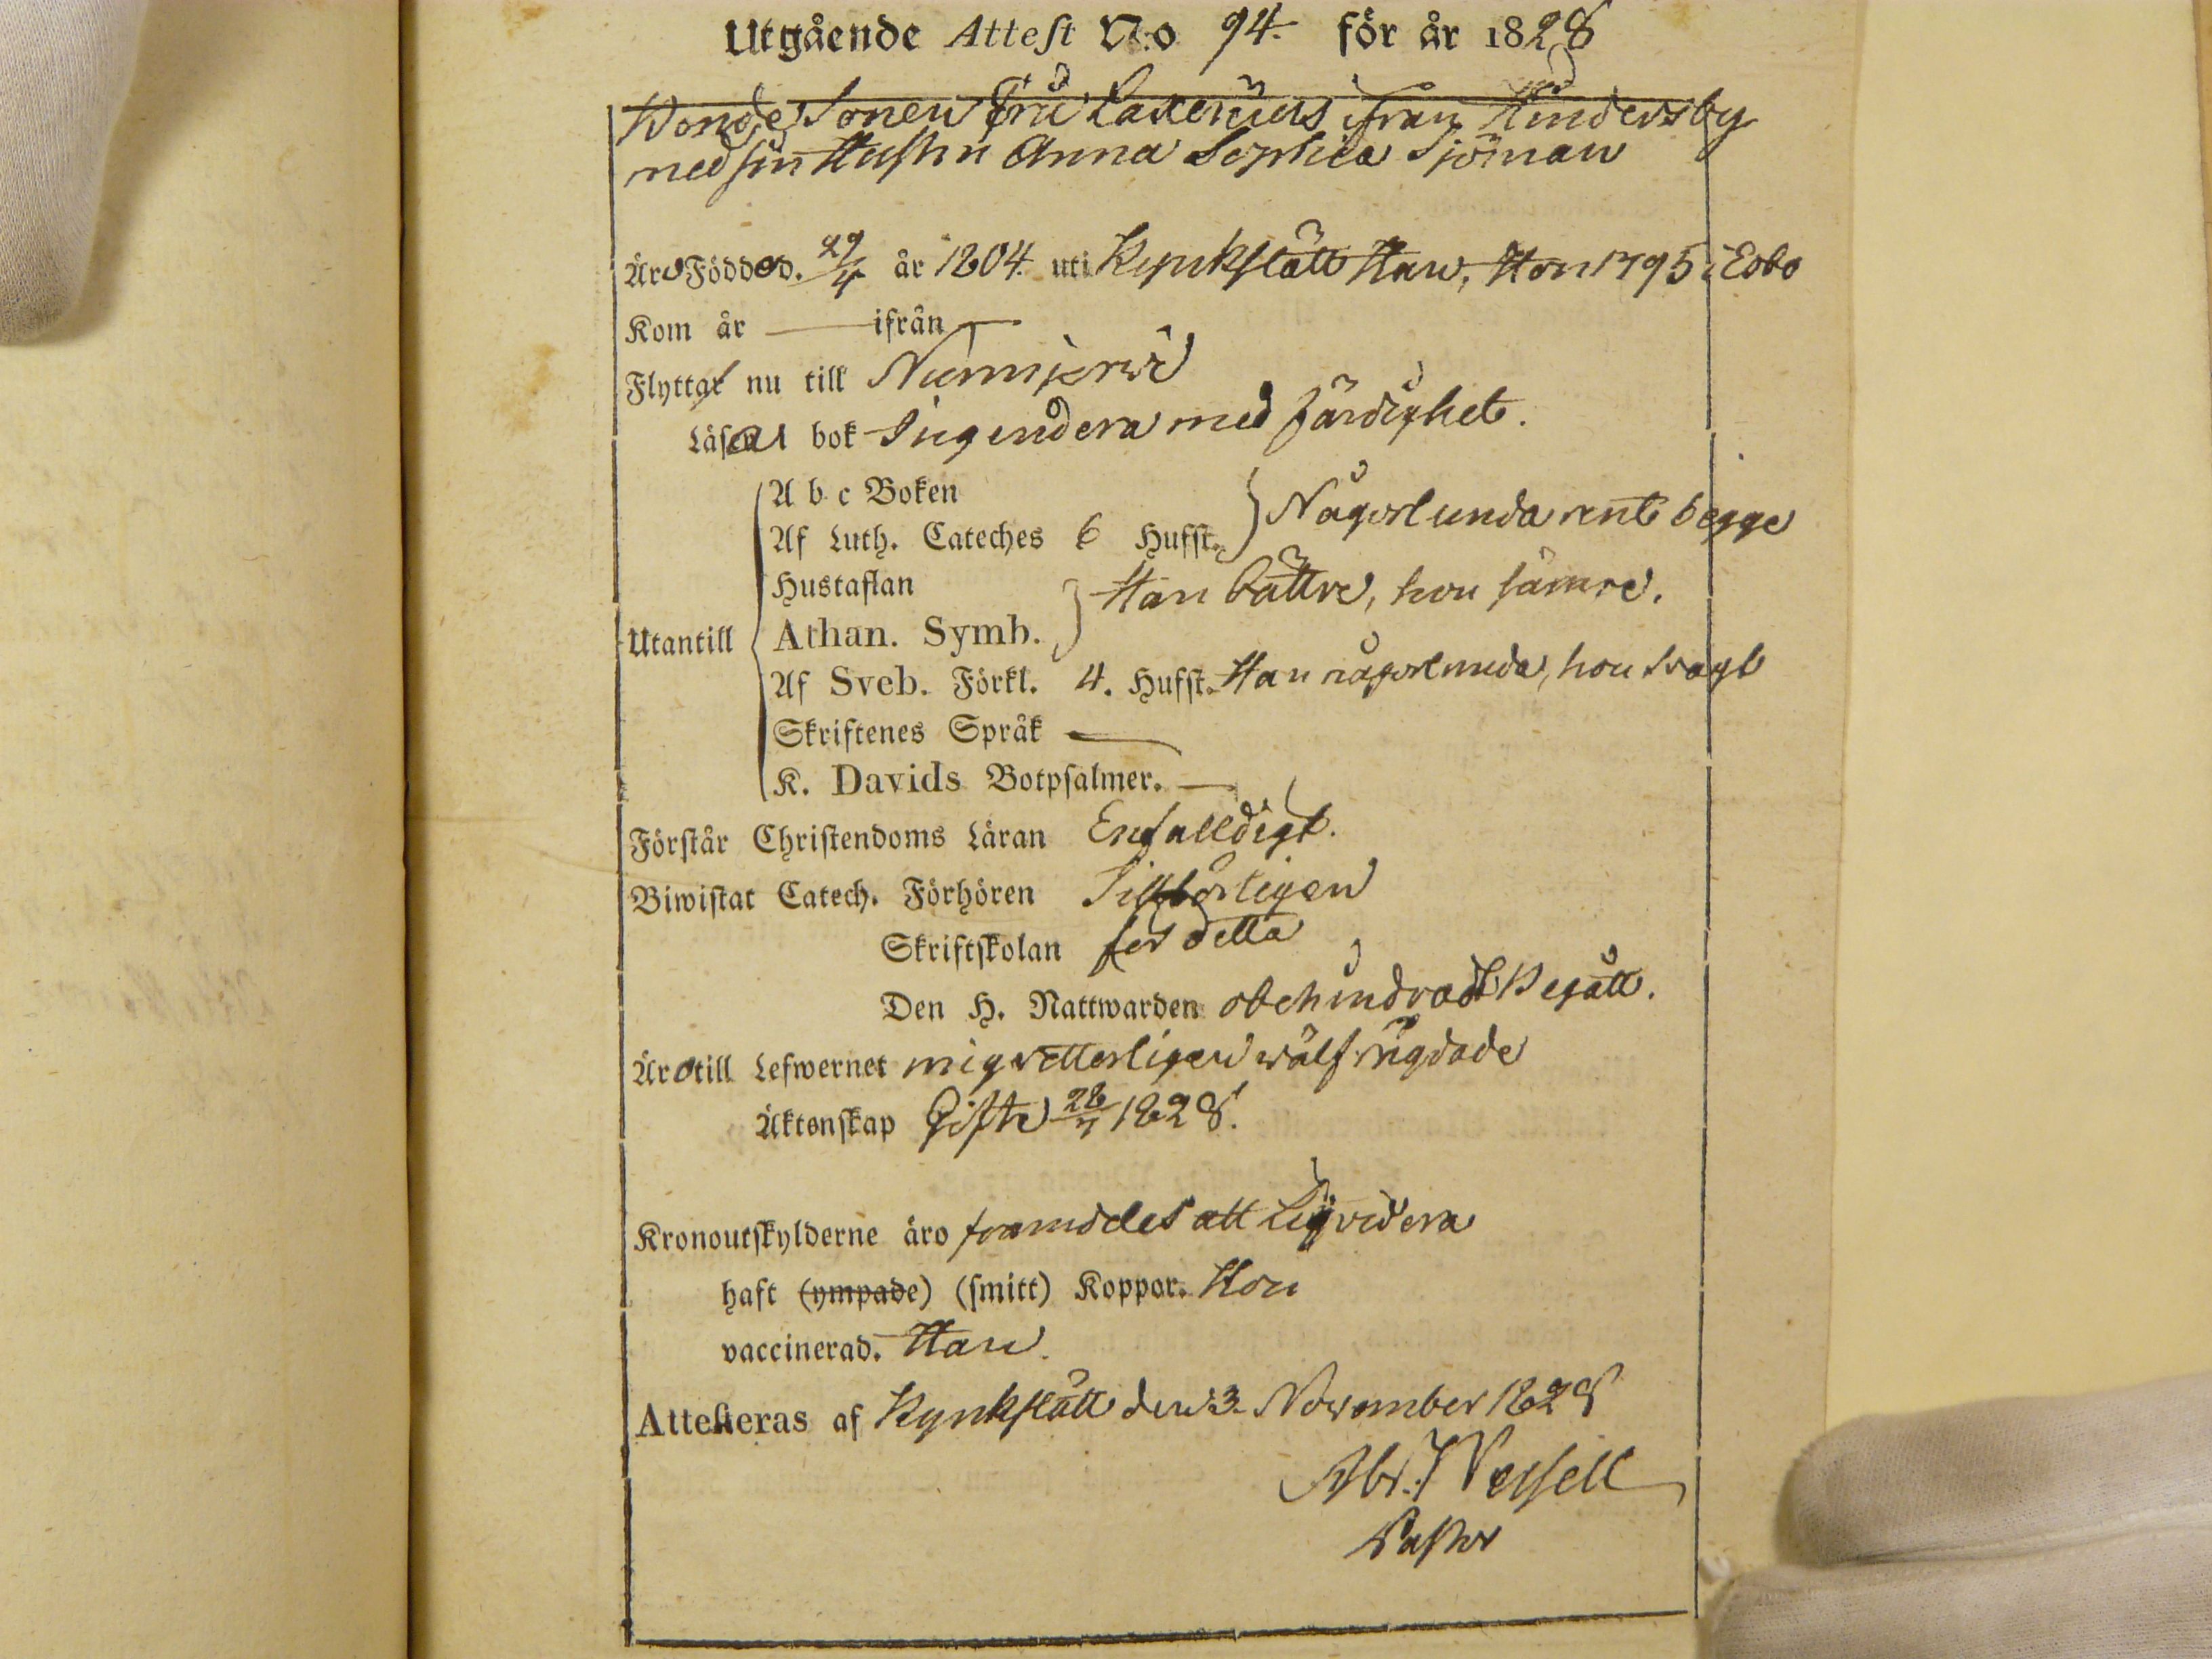 Utgående Attest N:o 94. för år 1828
Bonde Sonen från Hindersby
med sin Hustru Anna Sophia Sjöman
Äro Födde d. 29/4 år 1804. uti Kyrkslätt Han, Hon 1795 i Esbo
Kom år — ifrån —
Flytta nu till Nummijerwi
Läsa i bok Ingendera med färdighet.
A b c Boken
Af Luth. Cateches 6 Hufst. } Någorlunda rent begge
Hustaflan
Utantill Athan. Symb. } Han bättre, hon sämre.
Af Sveb. Förkl. 4. Hufst. Han någorlunda, hon svagt
Skriftenes Språk —
K. Davids Botpsalmer. —
Förstår Christendoms Läran Enfalldigt.
Biwistat Catech. Förhören Tillbörligen
Skriftskolan för detta
Den H. Nattwarden obehindradt Begått.
Äro till Lefwernet migvetterligen wälfrägdade
Äktenskap Gifte 28/4 1828.
Kronoutskylderne äro framdeles att Liqvidera
haft (ympade) (smitt) Koppor. Hon
vaccinerad. Han.
Attesteras af Kyrkslätt den 3. November 1828
Abr. Wessell
Pastor